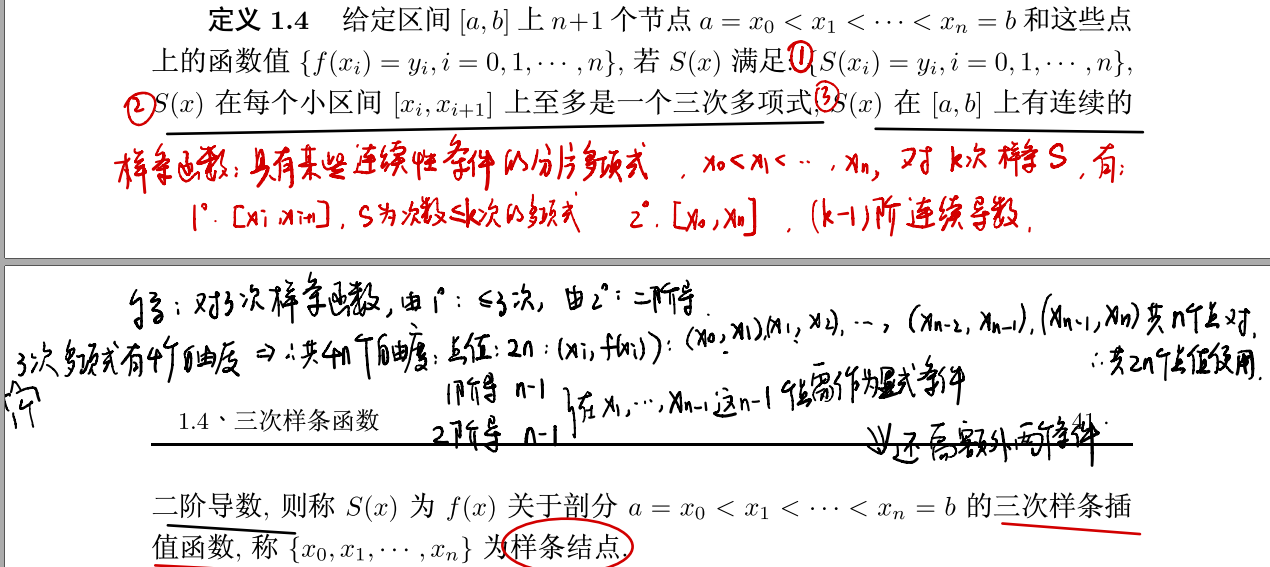 定义 1.4 给定区间 [a, b] 上 n+1 个节点 a = x₀ < x₁ < ··· < xₙ = b 和这些点
上的函数值 {f(xᵢ) = yᵢ, i = 0, 1, ··· , n}, 若 S(x) 满足: ① {S(xᵢ) = yᵢ, i = 0, 1, ··· , n},
② S(x) 在每个小区间 [xᵢ, xᵢ₊₁] 上至多是一个三次多项式, ③ S(x) 在 [a, b] 上有连续的
样条函数: 具有某些连续性条件的分片多项式, x₀<x₁<···, xₙ, 对 k次样条S, 有:
1°. [xᵢ, xᵢ₊₁], S为次数≤k次的多项式 2°. [x₀, xₙ], (k-1)阶连续导数.
: 对3次样条函数, 由1°: ≤3次, 由2°: 二阶导.
3次多项式有4个自由度 ⇒ ∴共4n个自由度: 点值: 2n: (xᵢ, f(xᵢ)): (x₀, x₁), (x₁, x₂), ···, (xₙ₋₂, xₙ₋₁), (xₙ₋₁, xₙ) 共n个点对,
∴共2n个点值使用.
1阶导 n-1
2阶导 n-1 } 在 x₁, ···, xₙ₋₁ 这n-1个点需作为显式条件
1个
⇓ 还需额外两个条件
1.4、三次样条函数 41
二阶导数, 则称 S(x) 为 f(x) 关于剖分 a = x₀ < x₁ < ··· < xₙ = b 的三次样条插
值函数, 称 {x₀, x₁, ··· , xₙ} 为样条结点.